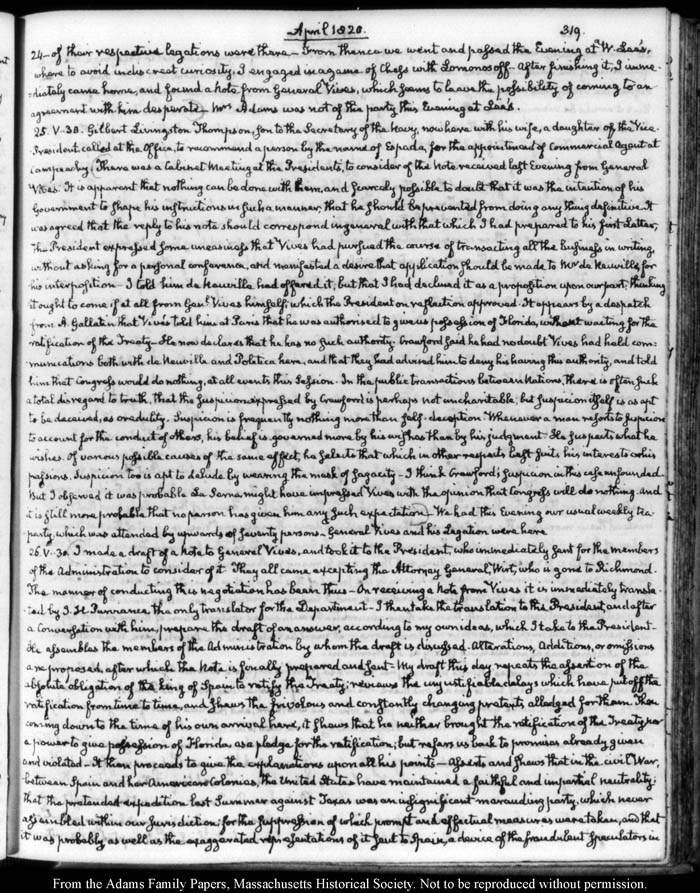 April 1820.
319.
24— of their respective legations were there— From thence we went and passed the Evening at W. Lee's,
where to avoid indiscreet curiosity, I engaged in a game of Chess with Lomonosoff. After finishing it, I imme-
-diately came home, and found a Note from General Vives, which seems to leave the possibility of coming to an
agreement with him desperate— Mrs Adams was not of the party this Evening at Lee's.
25. V. 30. Gilbert Livingston Thompson, son to the Secretary of the Navy, now here with his wife, a daughter of the Vice-
President, called at the Office, to recommend a person by the name of Espada, for the appointment of Commercial Agent at
Campeachy. There was a Cabinet Meeting at the Presidents, to consider of the Note received last Evening from General
Vives. It is apparent that nothing can be done with them, and scarcely possible to doubt that it was the intention of his
Government to shape his instructions in such a manner, that he should be prevented from doing any thing definitive. It
was agreed that the reply to his note should correspond in general with that which I had prepared to his first Letter,
The President expressed some uneasiness that Vives had pursued the course of transacting all the business in writing,
without asking for a personal conference, and manifested a desire that application should be made to Mr de Neuville for
his interposition— I told him de Neuville had offered it, but that I had declined it as a proposition upon our part, thinking
it ought to come if at all from Genl. Vives himself; which the President on reflection approved. It appears by a despatch
from A. Gallatin that Vives told him at Paris that he was authorised to give us possession of Florida, without waiting for the
ratification of the Treaty— He now declares that he has no such authority. Crawford said he had no doubt Vives had held com-
munications both with de Neuville and Politica here, and that they had advised him to deny his having this authority, and told
him that Congress would do nothing, at all events this Session. In the public transactions between Nations, there is often such
a total disregard to truth, that the suspicion expressed by Crawford is perhaps not uncharitable; but suspicion itself is as apt
to be deceived, as credulity. Suspicion is frequently nothing more than self-deception. Whenever a man resorts to suspicion
to account for the conduct of others, his belief is governed more by his wishes than by his judgment. He suspects what he
wishes. Of various possible causes of the same effect, he selects that which in other respects best suits his interests or his
passions. Suspicion too is apt to delude by wearing the mask of sagacity— I think Crawford's suspicion in this case unfounded.
But I observed it was probable La Serna, might have impressed Vives with the opinion that Congress will do nothing, and
it is still more probable that no person has given him any such expectation— We had this Evening our usual weekly tea-
party, which was attended by upwards of seventy persons— General Vives and his Legation were here.
26. V. 30. I made a draft of a Note to General Vives, and took it to the President, who immediately sent for the members
of the Administration to consider of it. They all came excepting the Attorney General, Wirt, who is gone to Richmond.
The manner of conducting this negotiation has been thus— On receiving a Note from Vives it is immediately transla-
ted by J. H. Purviance, the only translator for the Department— I then take the translation to the President, and after
a Conversation with him, prepare the draft of an answer, according to my own ideas, which I take to the President—
He assembles the members of the Administration by whom the draft is discussed. Alterations, Additions, or omissions
are proposed, after which the Note is finally prepared and sent— My draft this day repeats the assertion of the
absolute obligation of the king of Spain to ratify the Treaty; reviews the unjustifiable delays which have put off the
ratification from time to time, and shews the frivolous and constantly changing pretexts alledged for them. Then
coming down to the time of his own arrival here, it shews that he neither brought the ratification of the Treaty nor
a power to give possession of Florida, as a pledge for the ratification; but refers us back to promises already given
and violated— It then proceeds to give the explanations upon all his points— asserts and shews that in the civil War,
between Spain and her American Colonies, the United States have maintained a faithful and impartial neutrality;
that the pretended expedition last Summer against Texas was an insignificant marauding party, which never
assembled within our Jurisdiction; for the suppression of which prompt and effectual measures were taken, and that
it was probably as well as the exaggerated representations of it sent to Spain, a device of the fraudulent speculators in
From the Adams Family Papers, Massachusetts Historical Society. Not to be reproduced without permission.